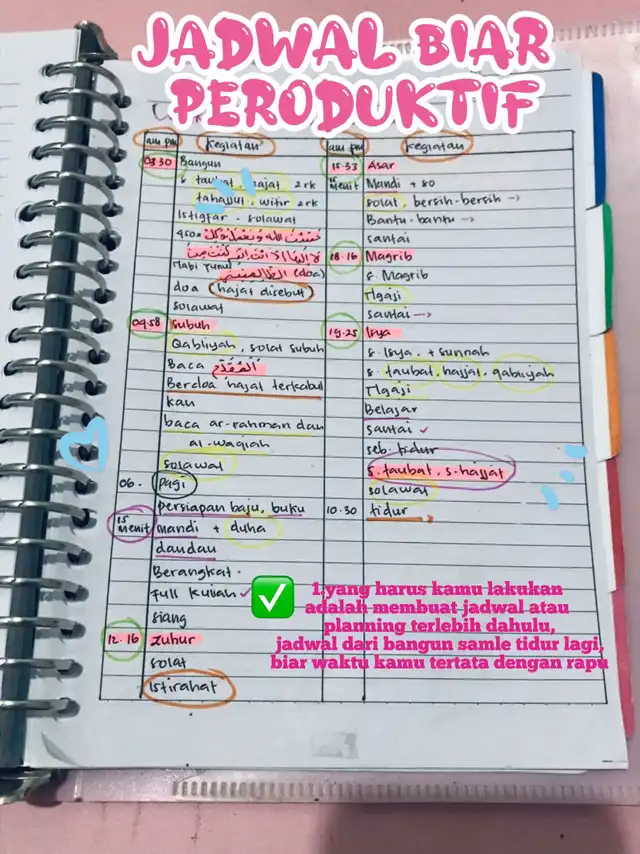 JADWAL BIAR
PERODUKTIF
am pm kegiatan
03.30 Bangun
s taubat, hajat 2rk
tahajjud, witir 2rk
Istigfar - solawat
450x حسبنا الله ونعم الوكيل
لا اله الا انت سبحنك اني كنت من
Nabi Yunus الظالمين (doa)
doa (hajat disebut)
solawat
04.58 Subuh
Qabliyah, solat subuh
Baca
Berdoa hajat terkabul
kan
baca ar-rahman dan
al-waqiah
solawat
06. pagi
persiapan baju, buku
15 menit mandi + duha
dandan
Berangkat.
Full kuliah ✓
siang
12.16 Zuhur
solat
istirahat
am pm kegiatan
15.33 Asar
menit Mandi + so
solat, bersih-bersih →
Bantu-bantu →
santai
18.16 Magrib
s. Magrib
Ngaji
santai →
19.25 Isya
s. Isya, + sunnah
s. taubat, hajjat, qabliyah
Ngaji
Belajar
santai ✓
seb. tidur
s. taubat, s. hajjat
solawat
10.30 tidur →
✅ 1.yang harus kamu lakukan
adalah membuat jadwal atau
planning terlebih dahulu,
jadwal dari bangun samle tidur lagi,
biar waktu kamu tertata dengan rapu